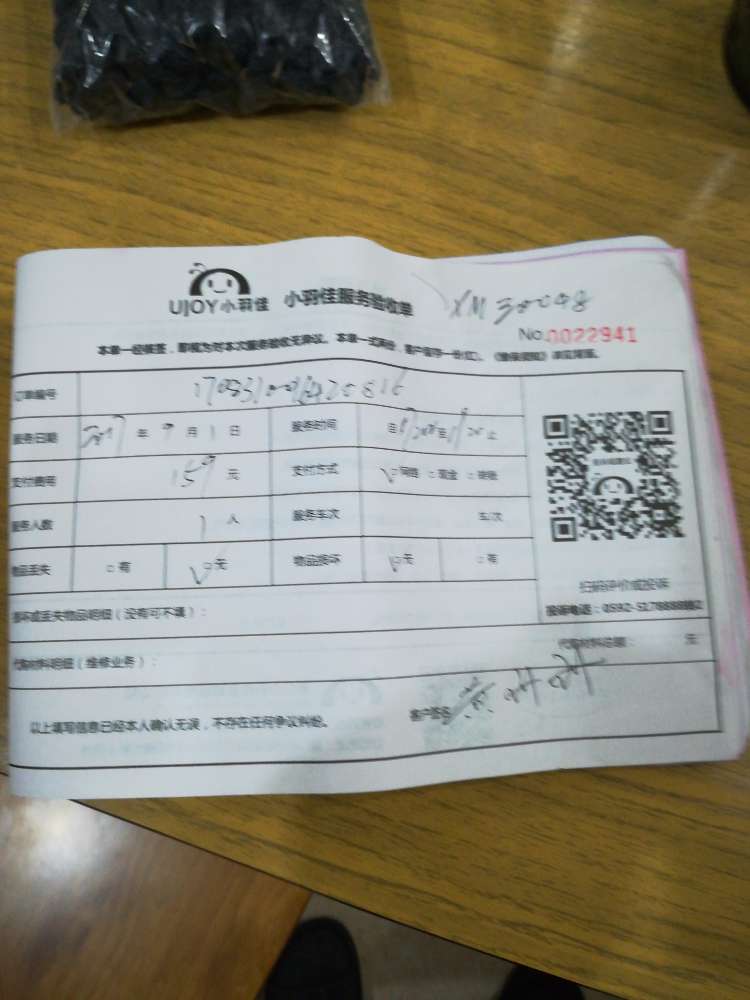 UJOY小羽佳 小羽佳服务验收单
XM30008
No.0022941
本单一经接签,即视为对本次服务验收无异议。本单一式两份,客户留存一份(红)。
订单编号
服务日期 2017年9月1日 服务时间 自 至 止
支付费用 159元 支付方式 网销 现金 转账
服务人数 1人 服务车次 车/次
物品丢失 有 无 物品损坏 无 有
损坏或丢失物品明细(没有可不填):
扫码评价或投诉
代购材料明细(维修业务): 代购材料总额: 元
以上填写信息已经本人确认无误,不存在任何争议纠纷。 客户签名